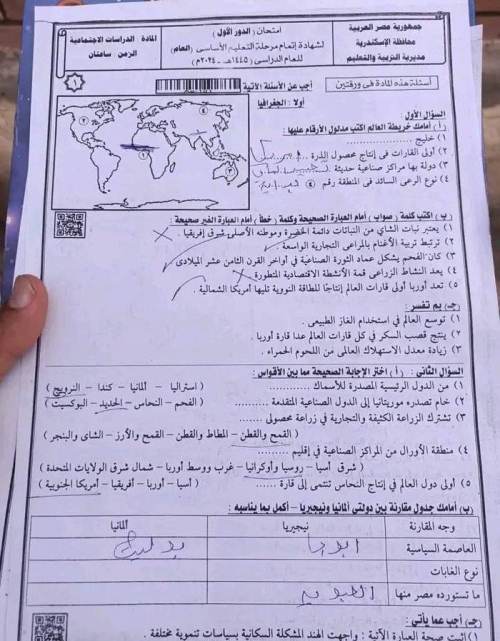 جمهورية مصر العربية
محافظة الإسكندرية
مديرية التربية والتعليم
امتحان (الدور الأول)
لشهادة إتمام مرحلة التعليم الأساسى (العام)
للعام الدراسى (١٤٤٥هـ - ٢٠٢٤م)
المادة : الدراسات الاجتماعية
الزمن : ساعتان
أسئلة هذه المادة فى ورقتين
أجب عن الأسئلة الآتية
١
أولا : الجغرافيا
السؤال الأول
( أ ) أمامك خريطة العالم اكتب مدلول الأرقام عليها :
١) خليج
٢) أولى القارات فى إنتاج محصول الذرة
٣) دولة بها مراكز صناعية حديثة
٤) نوع الرعى السائد فى المنطقة رقم
(ب) اكتب كلمة ( صواب ) أمام العبارة الصحيحة وكلمة ( خطأ ) أمام العبارة الغير صحيحة :
١) يعتبر نبات الشاي من النباتات دائمة الخضرة وموطنه الأصلى شرق إفريقيا .
٢) ترتبط تربية الأغنام بالمراعى التجارية الواسعة .
٣) كان الفحم يشكل عماد الثورة الصناعية في أواخر القرن الثامن عشر الميلادى
٤) يعد النشاط الزراعى قمة الأنشطة الاقتصادية المتطورة .
٥) تعد أوربا أولى قارات العالم إنتاجًا للطاقة النووية تليها أمريكا الشمالية .
(جـ) بم تفسر :
١) توسع العالم في استخدام الغاز الطبيعى .
٢) ينتج قصب السكر في كل قارات العالم عدا قارة أوربا .
٣) زيادة معدل الاستهلاك العالمى من اللحوم الحمراء .
السؤال الثانى : ( أ ) اختر الإجابة الصحيحة مما بين الأقواس :
١) من الدول الرئيسية المصدرة للأسماك ......... ( استراليا - ألمانيا - كندا - النرويج )
٢) خام تصدره موريتانيا إلى الدول الصناعية المتقدمة ......... ( الفحم - النحاس - الحديد - البوكسيت )
٣) تشترك الزراعة الكثيفة والتجارية في زراعة محصولى .........
( القمح والقطن - المطاط والقطن - القمح والأرز - الشاى والبنجر )
٤) منطقة الأورال من المراكز الصناعية في إقليم .........
( شرق أسيا - روسيا وأوكرانيا - غرب ووسط أوربا - شمال شرق الولايات المتحدة )
٥) أولى دول العالم في إنتاج النحاس تنتمى إلى قارة ...... ( أسيا - أوربا - أفريقيا - أمريكا الجنوبية )
(ب) أمامك جدول مقارنة بين دولتى ألمانيا ونيجيريا - أكمل بما يناسبه :
وجه المقارنة نيجيريا ألمانيا
العاصمة السياسية ابوجا
نوع الغابات
ما تستورده مصر منها
(جـ) أجب عما يأتى :
١) اثبت صحة العبارة الآتية : واجهت الهند المشكلة السكانية بسياسات تنموية مختلفة .